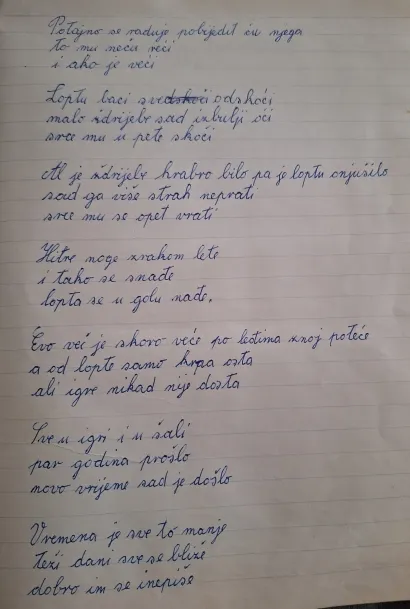 Potajno se raduje pobijedit ću njega
to mu neću reći
i ako je veći
Loptu baci sve odskoči
malo ždrijebe sad izbulji oči
srce mu u pete skoči
Al je ždrijebe hrabro bilo pa je loptu onjušilo
sad ga više strah neprati
srce mu se opet vrati
Hitre noge zrakom lete
i tako se snađe
lopta se u golu nađe.
Evo već je skoro veće po leđima znoj poteće
a od lopte samo krpa osta
ali igre nikad nije dosta
Sve u igri i u šali
par godina prošlo
novo vrijeme sad je došlo
Vremena je sve to manje
teži dani sve se bliže
dobro im se inepiše